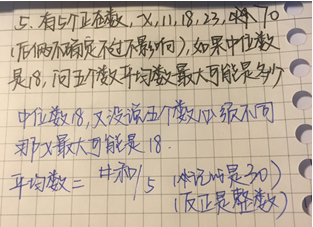 5. 有5个正整数, X, 11, 18, 23, 70
(后俩不确定不过不影响), 如果中位数
是18, 问五个数平均数最大可能是多少
中位数18, 又没说五个数必须不同
那X最大可能是18.
平均数= 总和/5 (
(反正是整数)